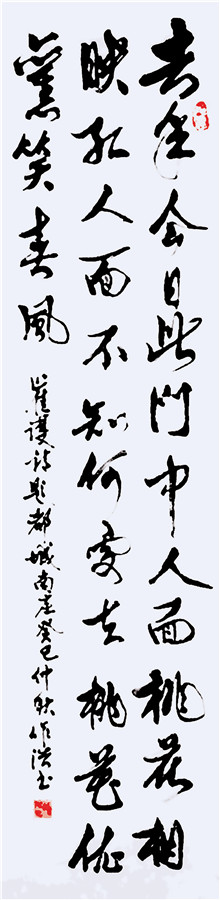 去年今日此門中人面桃花相
映紅人面不知何處去桃花依
舊笑春風
崔護詩題都城南莊癸巳仲秋作洪書